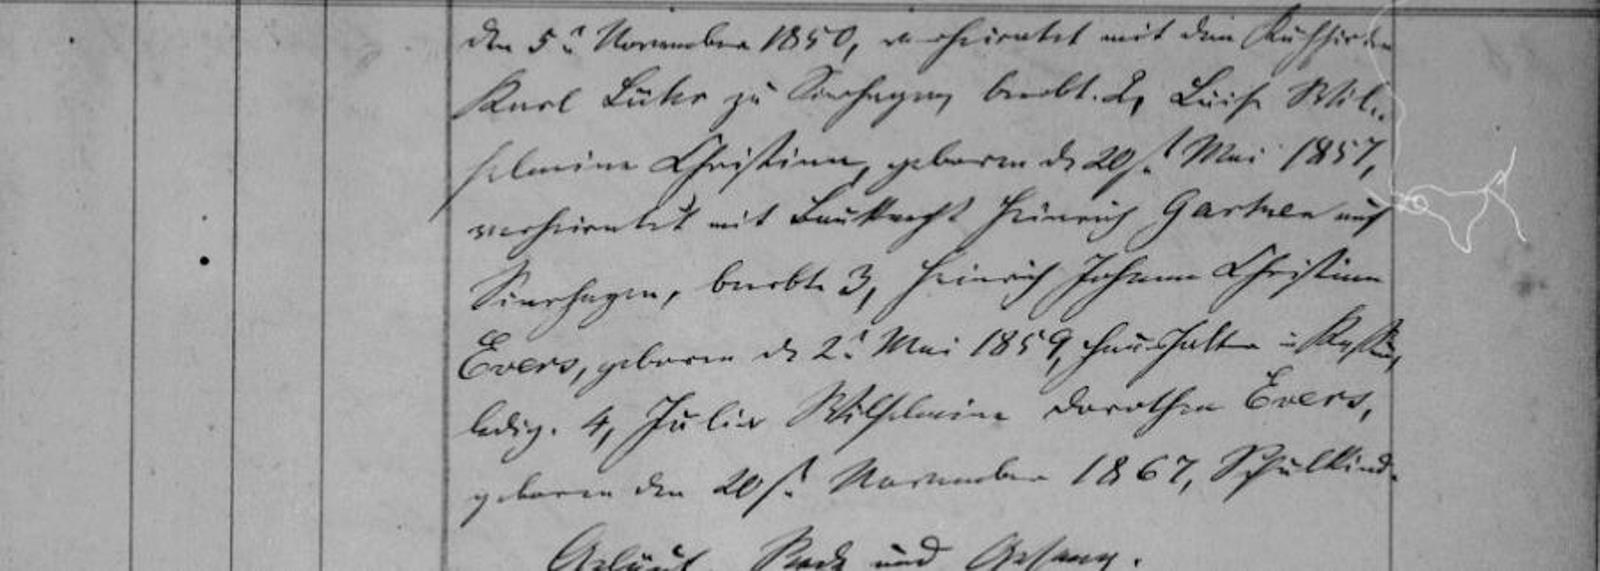 den 5t November 1850, verheiratet mit dem Kuhhirten
Karl Lühr zu Sierhagen, beerbt. 2, Luise Wil-
helmine Christine, geboren d 20st Mai 1857,
verheiratet mit Bauknecht Heinrich Gartner auf
Sierhagen, beerbt. 3, Heinrich Johann Christian
Evers, geboren d 2t Mai 1859, Haushalter in
ledig. 4, Julie Wilhelmine Dorothea Evers,
geboren den 20st November 1867, Schulkind.
Geläut, Rede und Gesang.